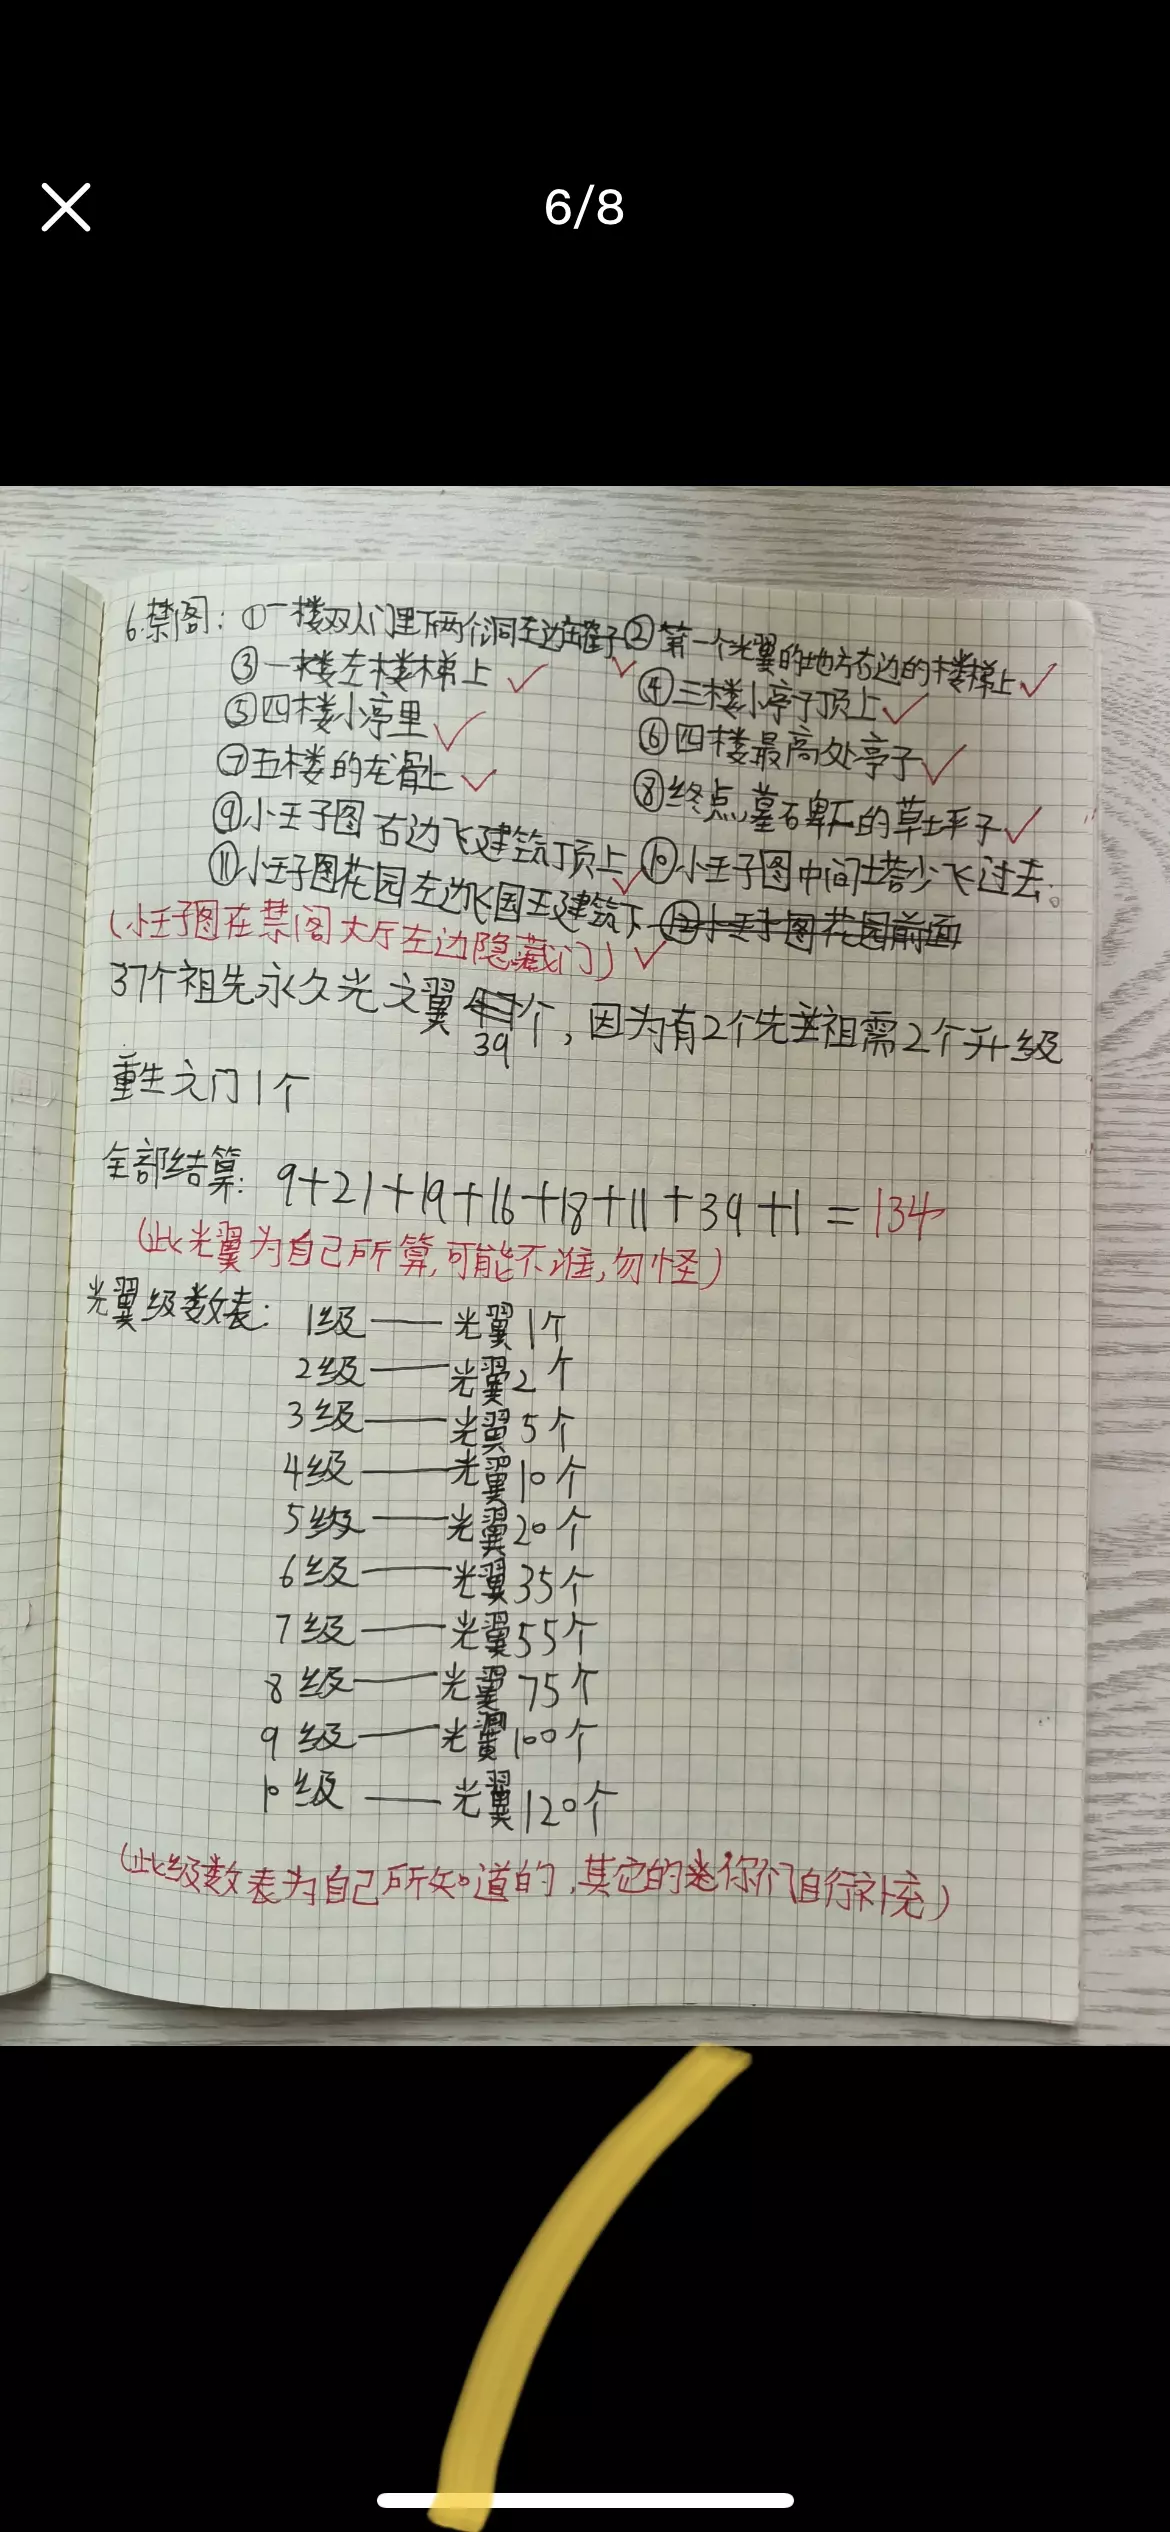 6/8
6.禁阁:①一楼双人门里下两个洞左边在罐子②第一个光翼的地方右边的楼梯上
③一楼左楼梯上 ④三楼小亭子顶上
⑤四楼小亭里 ⑥四楼最高处亭子
⑦五楼的龙骨上 ⑧终点墓石碑下的草坪子
⑨小王子图右边飞建筑顶上 ⑩小王子图中间塔沙飞过去。
⑪小王子图花园左边飞国王建筑下 ⑫小王子图花园前面
(小王子图在禁阁大厅左边隐藏门)
37个祖先永久光之翼 个,因为有2个先祖需2个升级
39
重生之门1个
全部结算:9+21+19+16+18+11+39+1=134
(此光翼为自己所算,可能不准,勿怪)
光翼级数表:1级——光翼1个
2级——光翼2个
3级——光翼5个
4级——光翼10个
5级——光翼20个
6级——光翼35个
7级——光翼55个
8级——光翼75个
9级——光翼100个
10级——光翼120个
(此级数表为自己所知道的,其它的你们自行补充)